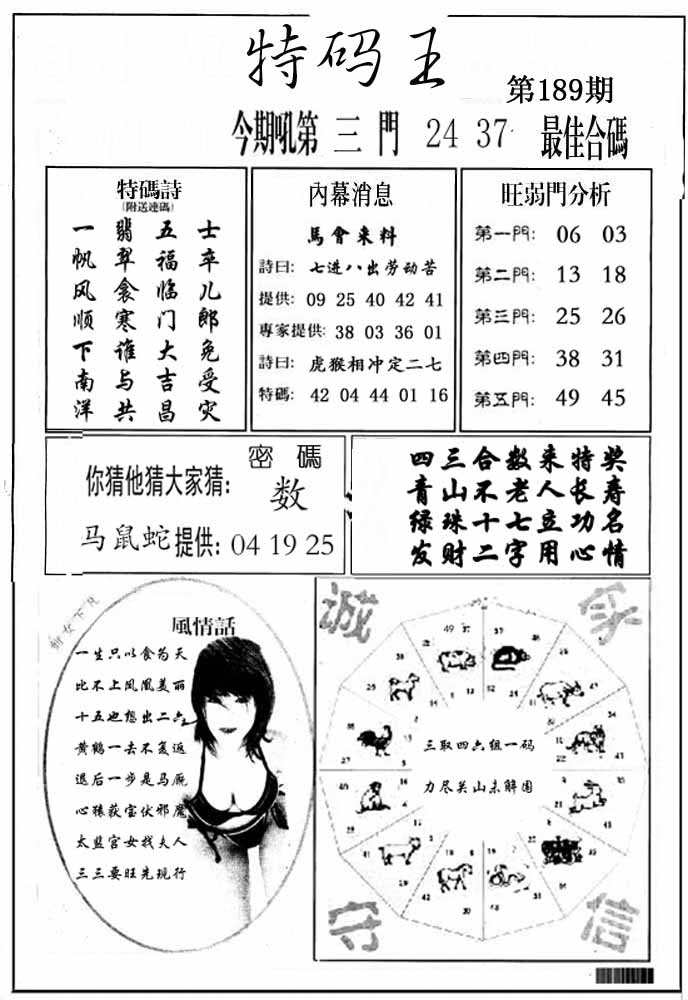 特码王
第189期
今期吼第 三 門 24 37 最佳合碼
特碼詩
(附送連碼)
一帆风顺下南洋
翡翠衾寒谁与共
五福临门大吉昌
士卒儿郎免受灾
內幕消息
馬會来料
詩曰: 七进八出劳动苦
提供: 09 25 40 42 41
專家提供: 38 03 36 01
詩曰: 虎猴相冲定二七
特碼: 42 04 44 01 16
旺弱門分析
第一門: 06 03
第二門: 13 18
第三門: 25 26
第四門: 38 31
第五門: 49 45
密碼
你猜他猜大家猜: 数
马鼠蛇提供: 04 19 25
四三合数来特奖
青山不老人长寿
绿珠十七立功名
发财二字用心情
風情話
一生只以食为天
比不上凤凰美丽
十五也想出二六
黄鹤一去不复返
退后一步是马厩
心猿获宝伏邪魔
太监宫女找夫人
三三要旺先现行
诚 家
三取四六组一码
力尽关山未解围
守 信